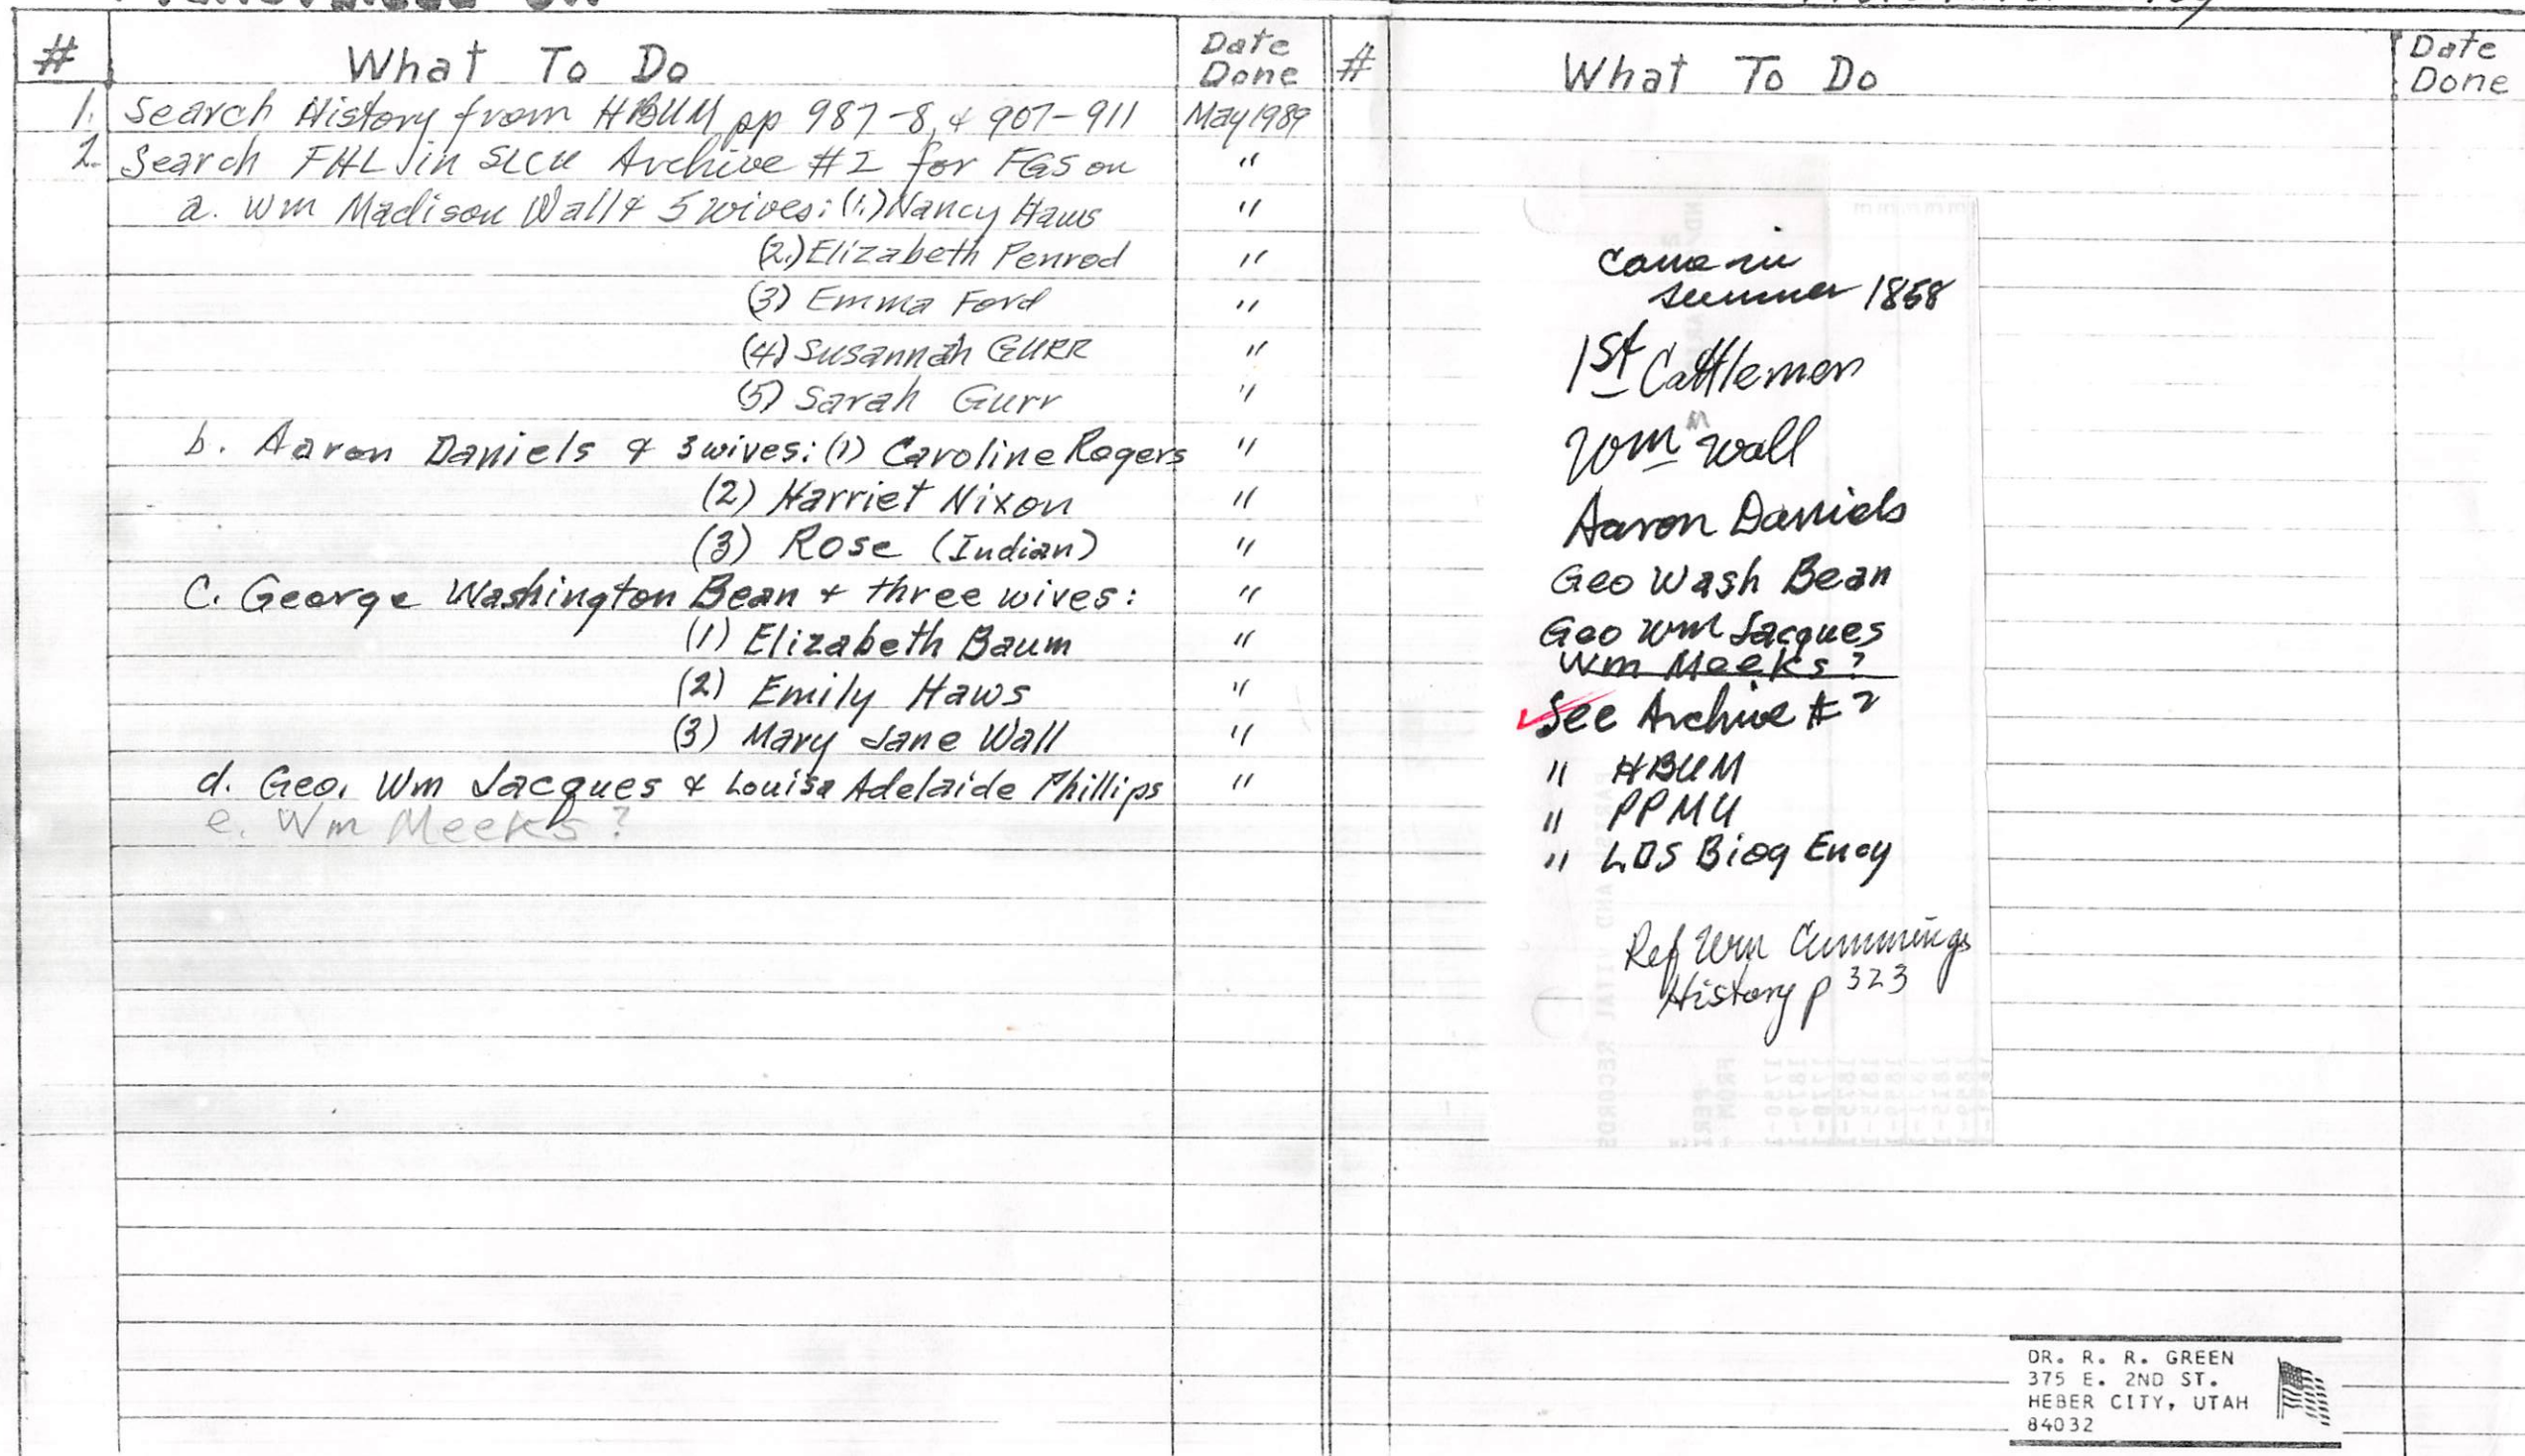 # What To Do Date Done
1. Search History from HBUM pp 987-8, & 907-911 May 1989
2. Search FHL in SLCU Archive #2 for FGS on "
a. Wm Madison Wall & 5 wives: (1.) Nancy Haws "
(2.) Elizabeth Penrod "
(3) Emma Ford "
(4) Susannah GURR "
(5) Sarah Gurr "
b. Aaron Daniels & 3 wives: (1) Caroline Rogers "
(2) Harriet Nixon "
(3) Rose (Indian) "
C. George Washington Bean + three wives: "
(1) Elizabeth Baum "
(2) Emily Haws "
(3) Mary Jane Wall "
d. Geo. Wm Jacques & Louisa Adelaide Phillips "
e. Wm Meeks?
# What To Do Date Done
Came in
summer 1858
1st Cattlemen
Wm M Wall
Aaron Daniels
Geo Wash Bean
Geo Wm Jacques
Wm Meeks?
See Archive #2
" HBUM
" PPMU
" LDS Biog Ency
Ref Wm Cummings
History p 323
DR. R. R. GREEN
375 E. 2ND ST.
HEBER CITY, UTAH
84032